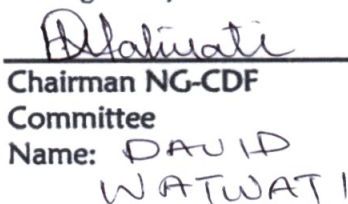 Chairman NG-CDF
Committee
Name: DAVID
WATWATI